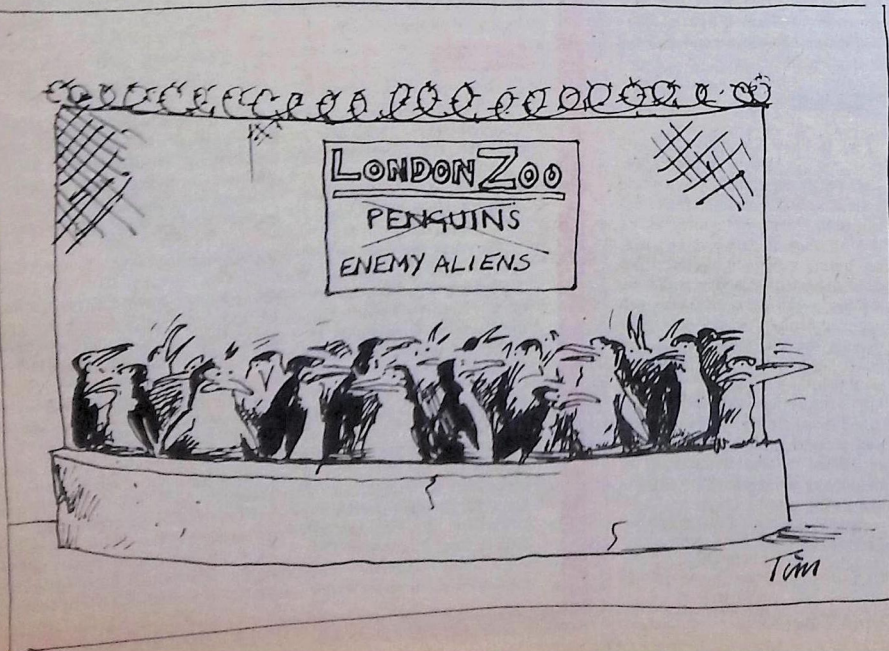 LONDON ZOO
PENGUINS
ENEMY ALIENS
Tim